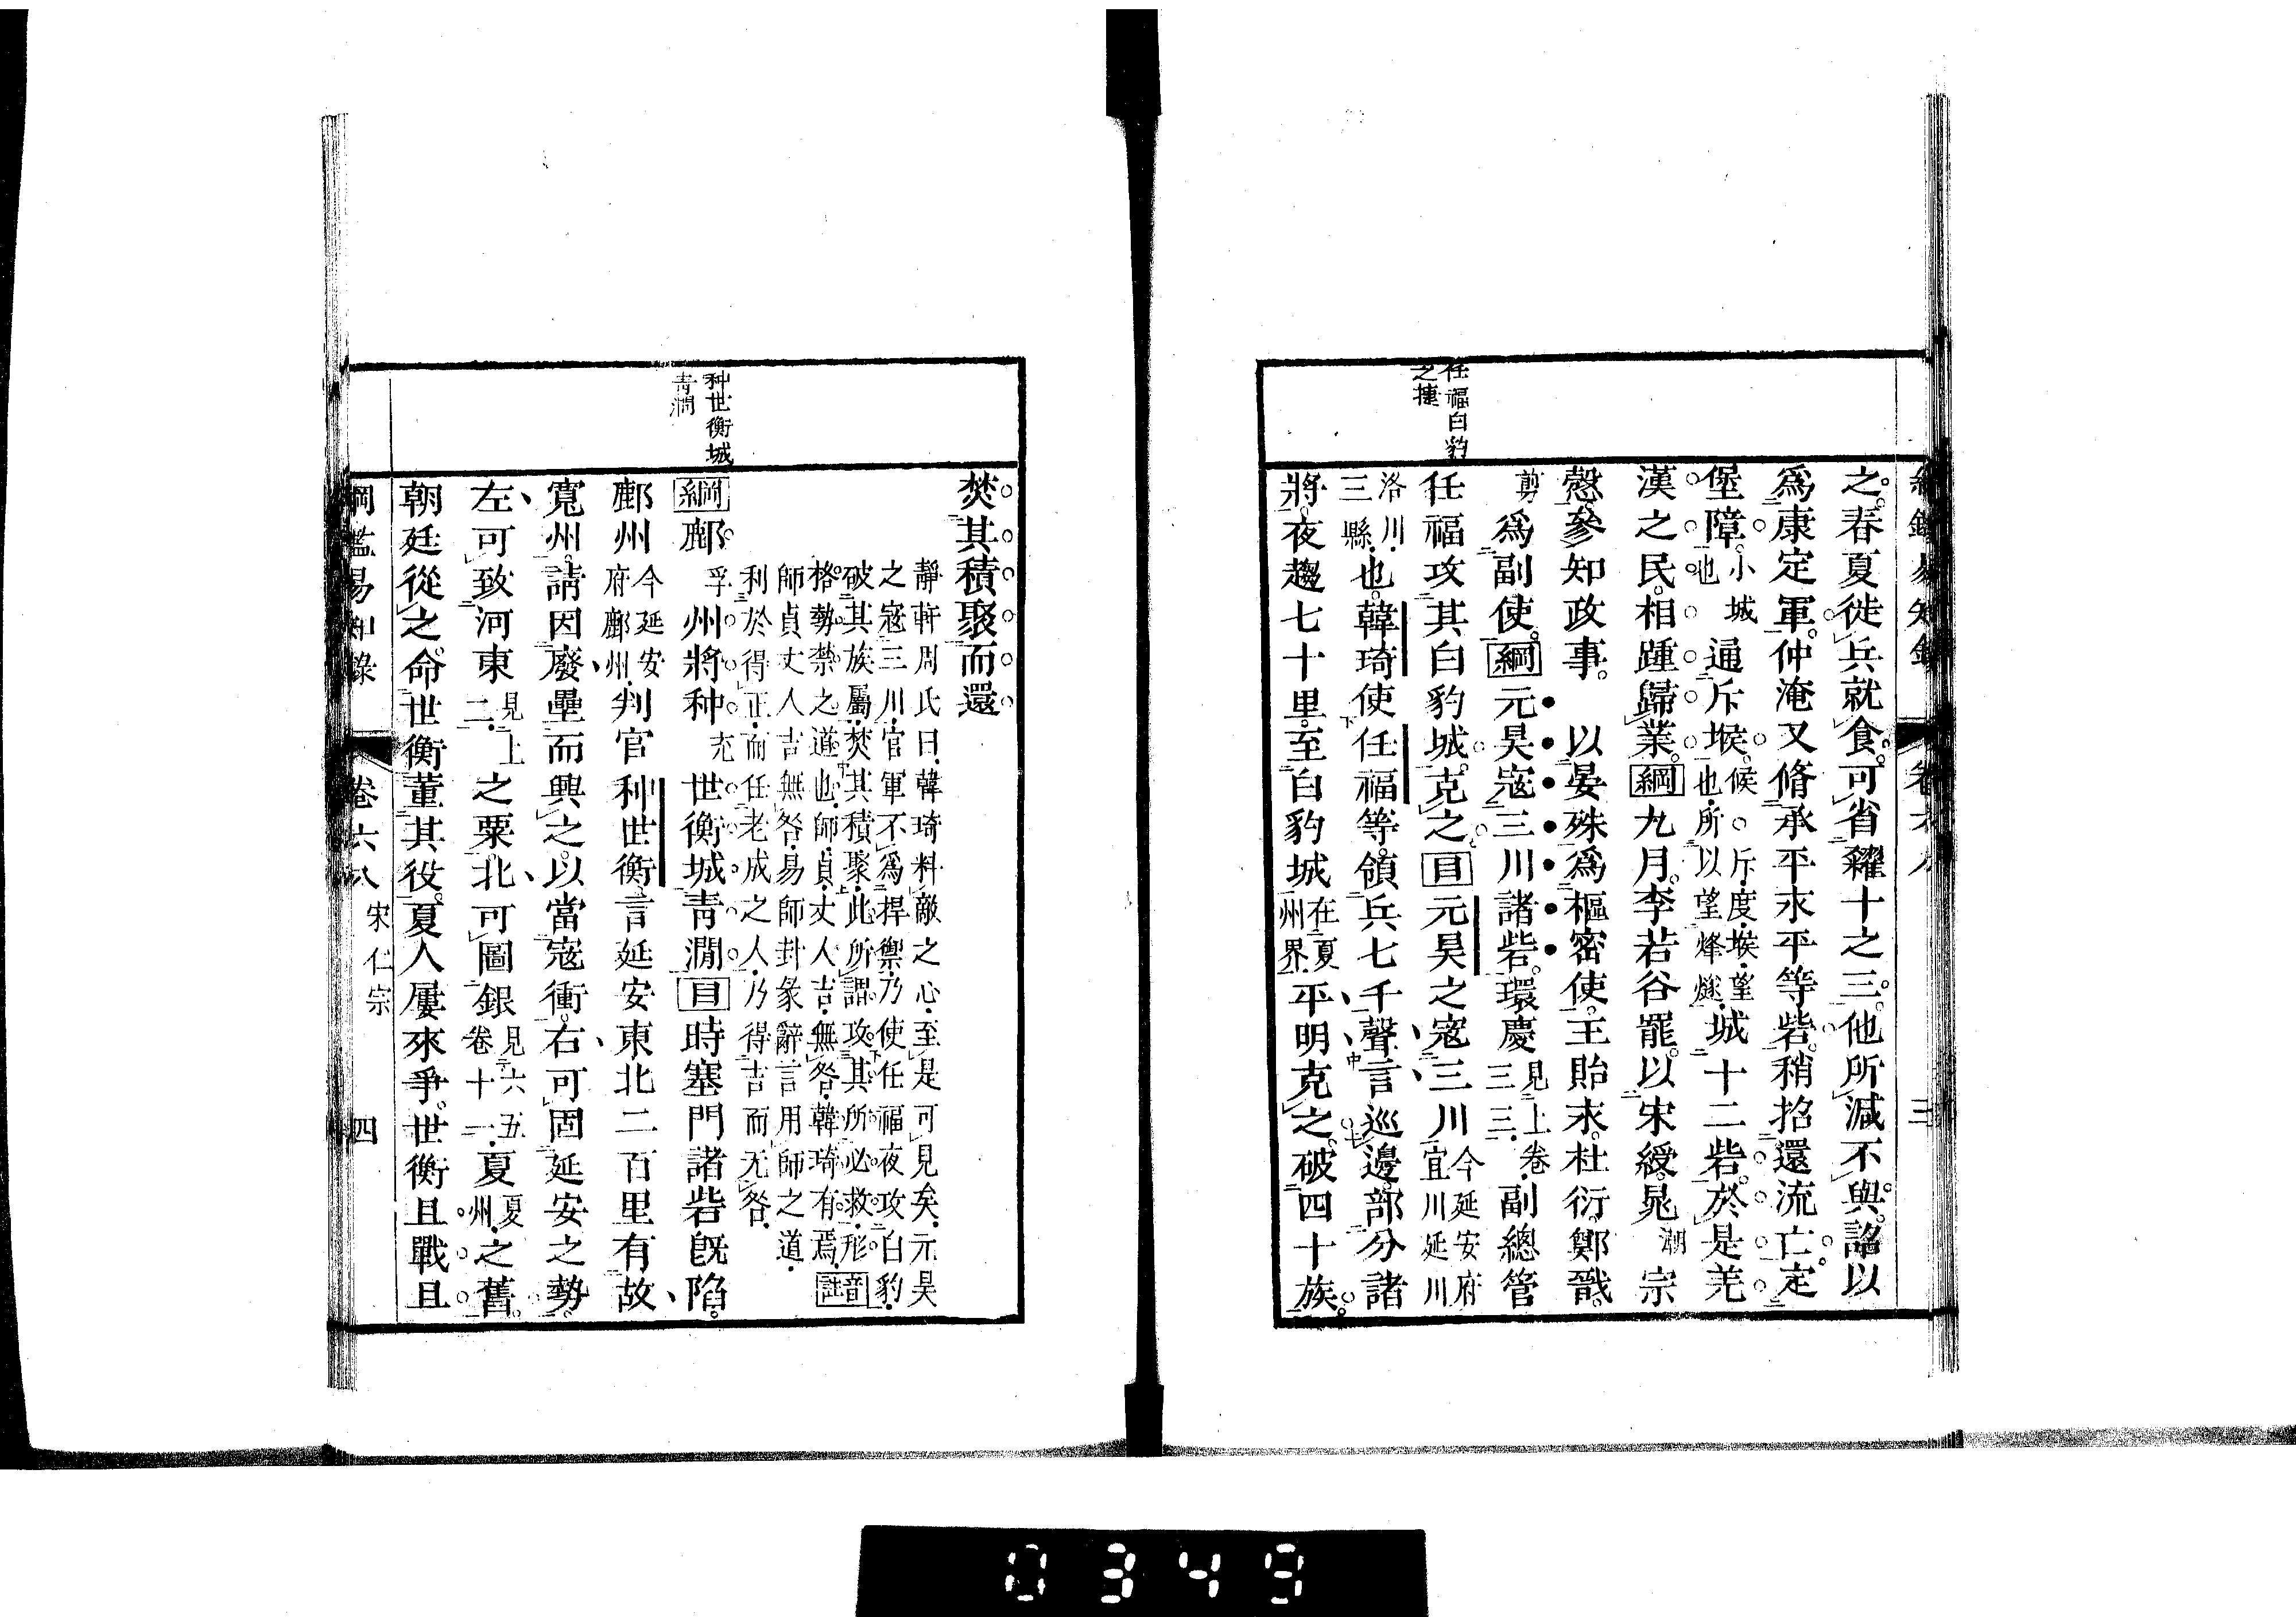 綱鑑易知錄 卷六八 三
之。春夏徙兵就食。可省糴十之三。他所減不與。詔以
爲康定軍。仲淹又脩承平永平等砦。稍招還流亡。定
堡障。小城也通斥堠。候○斥。度。堠。望也。所以望烽燧。城十二砦。於是羌
漢之民。相踵歸業。綱九月。李若谷罷。以宋綬。晁潮宗
慤。參知政事。以晏殊爲樞密使。王貽永。杜衍。鄭戩
剪爲副使。綱元昊寇三川諸砦。環慶見上卷三三。副總管
任福攻其白豹城。克之。目元昊之寇三川今延安府宜川延川
洛川三縣。也。韓琦使任福等。領兵七千聲言巡邊。部分諸
將。夜趨七十里。至白豹城在夏州界。平明克之。破四十族。
任福白豹
之捷
焚其積聚而還
靜軒周氏曰。韓琦料敵之心。至是可見矣。元昊
之寇三川。官軍不爲捍禦。乃使任福夜攻白豹。
破其族屬。焚其積聚。此所謂攻其所必救。形
格勢禁之道也。師。貞丈人吉。無咎。韓琦有焉。音註
師貞丈人吉無咎。易師卦彖辭。言用師之道。
利於得正。而任老成之人。乃得吉而无咎。
綱鄜孚州將种充世衡城青澗。目時塞門諸砦旣陷。
鄜州今延安府鄜州。判官种世衡。言延安東北二百里有故
寬州。請因廢壘而興之。以當寇衝。右可固延安之勢。
左可致河東見上二。之粟。北可圖銀見六五卷十一。夏夏州。之舊。
朝廷從之。命世衡董其役。夏人屢來爭。世衡且戰且
种世衡城
青澗
綱鑑易知錄 卷六八 宋仁宗 四
0349